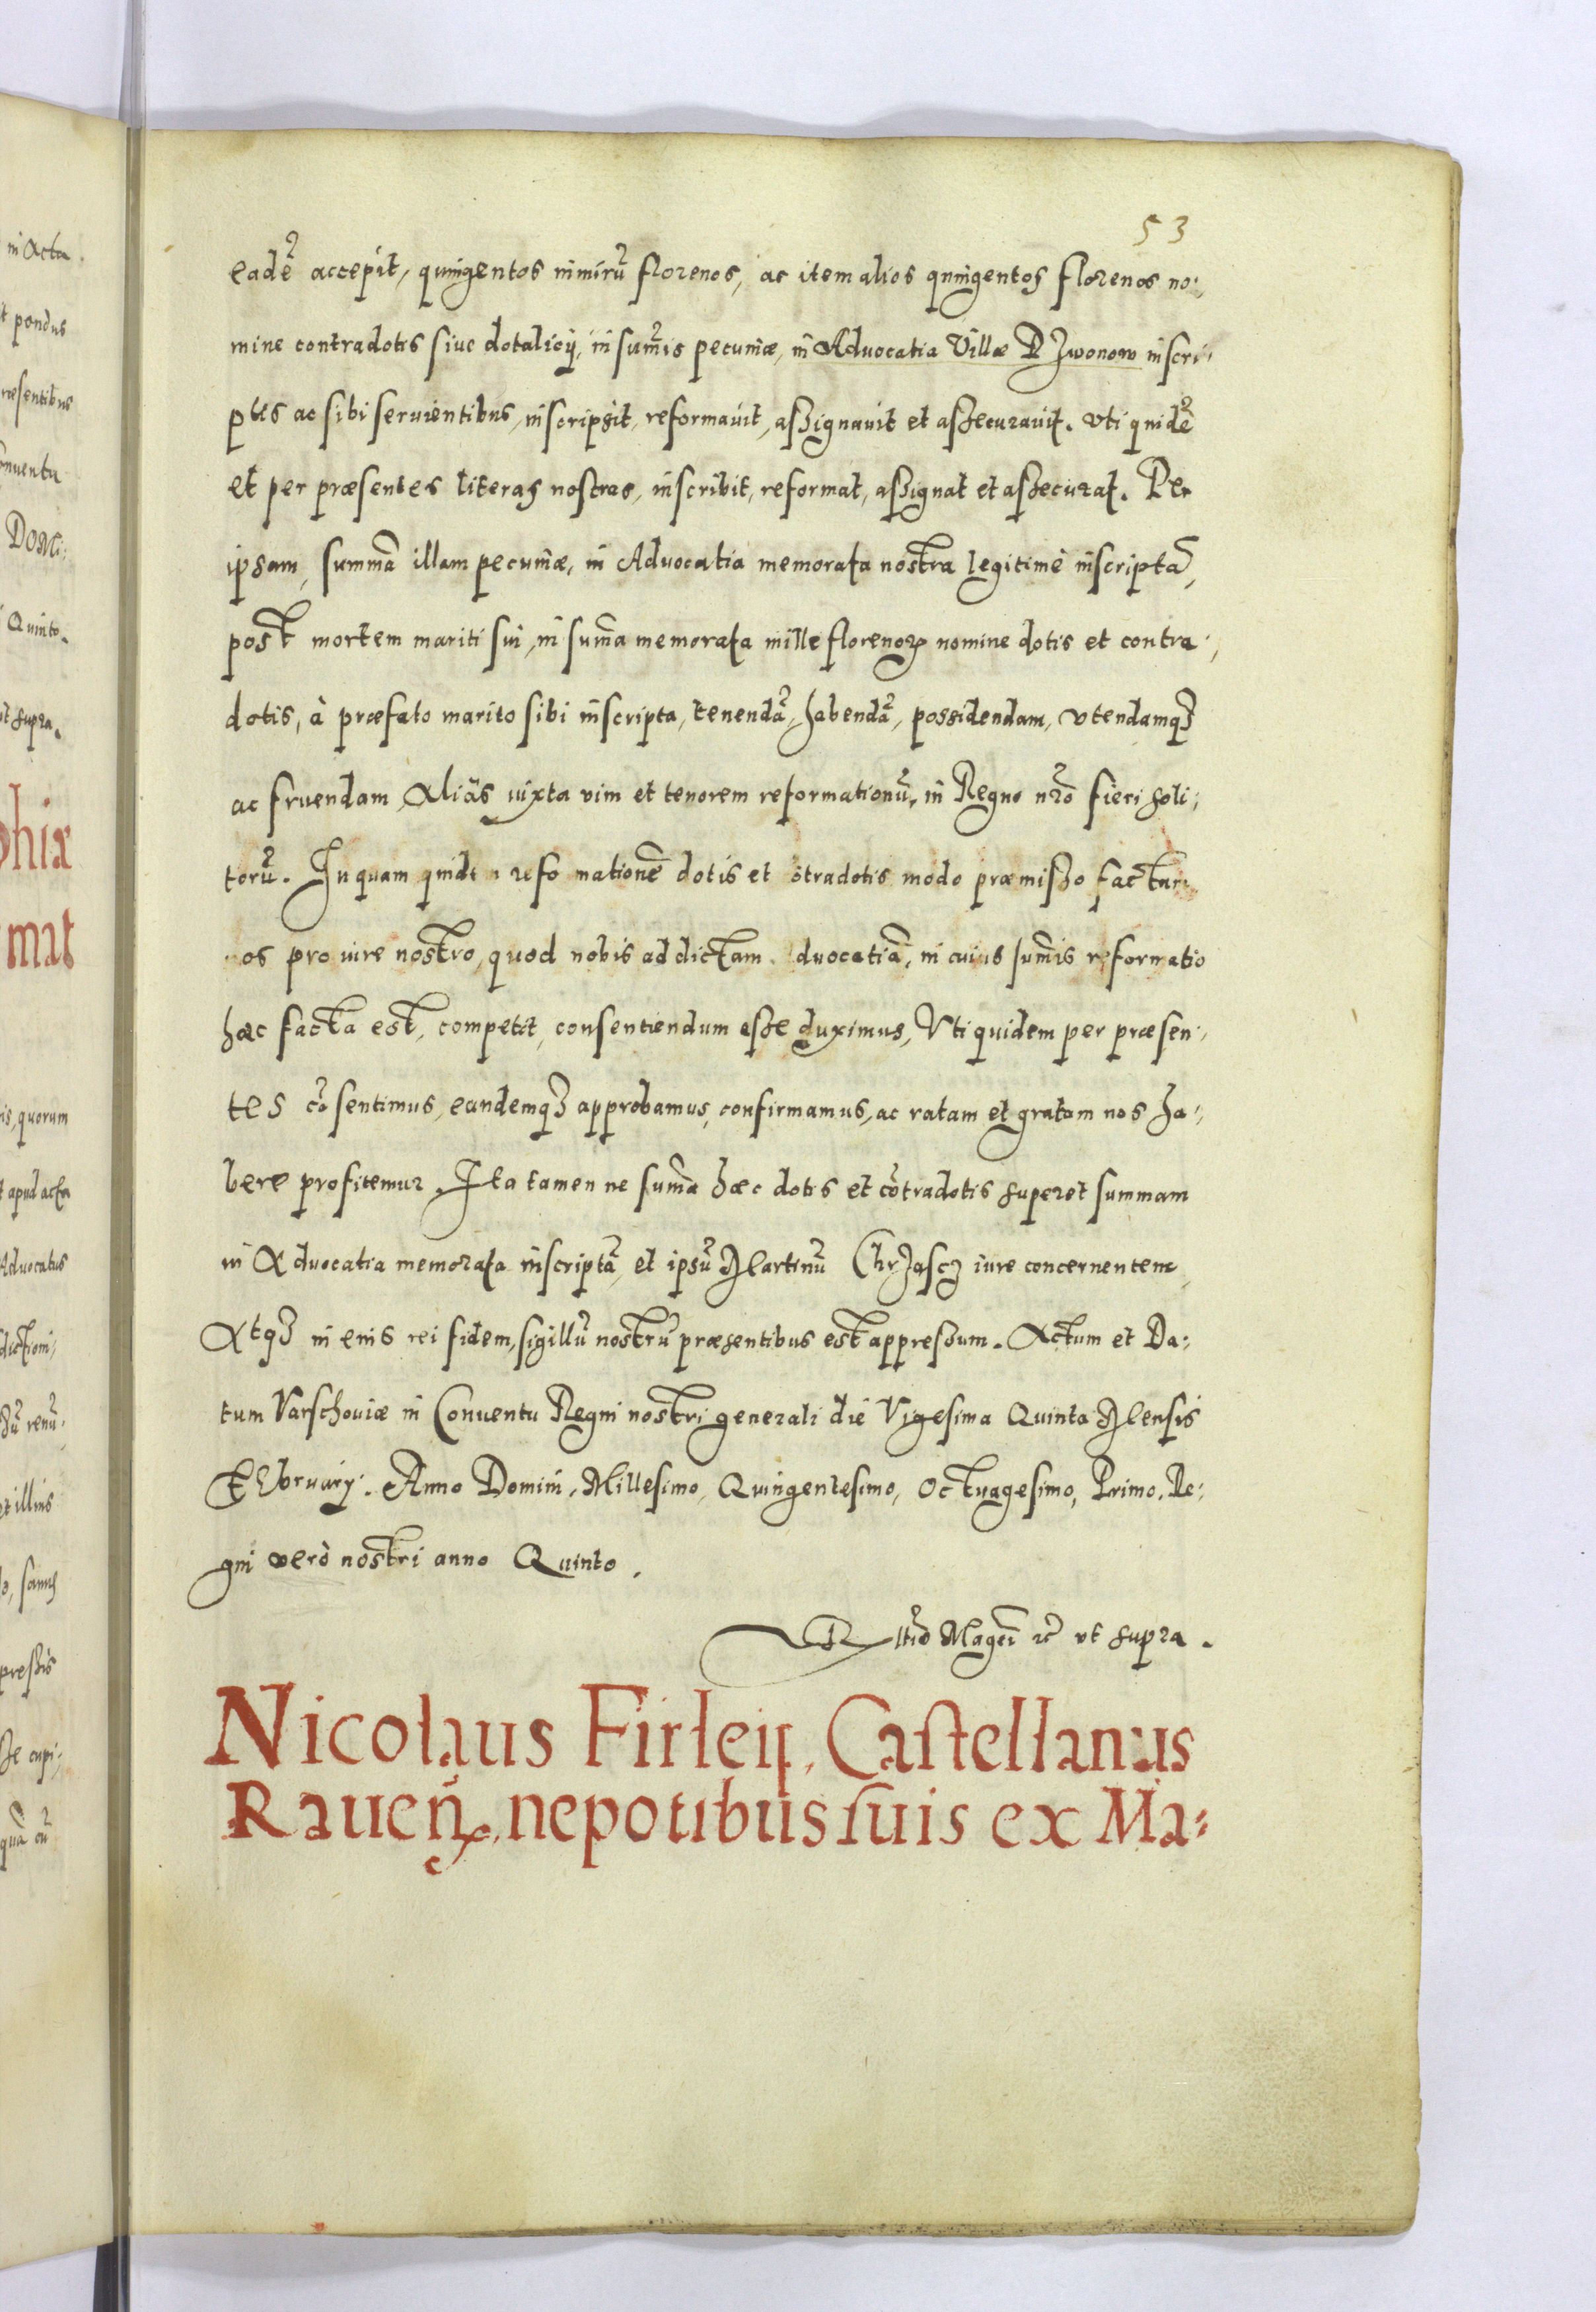 53
eadē accepit, quingentos nimirū florenos, ac item alios quingentos florenos no:
mine contradotis siue dotalicÿ, in sum̄is pecuniæ, in Aduocatia Villæ Dzwonow inscri:
ptis ac sibi seruientibus, inscripsit, reformauit, assignauit et assecurauit. Vti quidē
et per præsentes literas nostras, inscribit, reformat, assignat et assecurat. Per
ipsam, summā illam pecuniæ, in Aduocatia memorata nostra legitimè inscriptā,
post mortem mariti sui, in sum̄a memorata mille florenoꝝ nomine dotis et contra:
dotis, à præfato marito sibi inscripta, tenendā, habendā, possidendam, vtendamqꝫ
ac fruendam, Aliàs iuxta vim et tenorem reformationū, in Regno nr̄o fieri soli:
torū. In quam refo mationē dotis et modo præmisso
os pro iure nostro, quod nobis ad dictam duocatiā, in cuius sum̄is reformatio
hæc facta est, competit, consentiendum esse duximus, Vti quidem per præsen:
tes cōsentimus, eandemqꝫ approbamus, confirmamus, ac ratam et gratam nos ha:
bere profitemur. Ita tamen ne sum̄a hæc dotis et cōtradotis superet summam
in Aduocatia memorata inscriptā, et ipsū Martinū Chrzascz iure concernentem,
Atqꝫ in eius rei fidem, sigillū nostrū præsentibus est appressum. Actum et Da:
tum Varschouiæ in Conuentu Regni nostri generali die Vigesima Quinta Mensis
Februarÿ. Anno Domini, Millesimo, Quingentesimo, Octuagesimo, Primo, Re:
gni verò nostri anno Quinto.
vt supra.
Nicolaus Firleij, Castellanus
Raueñ, nepotibus suis ex Ma: